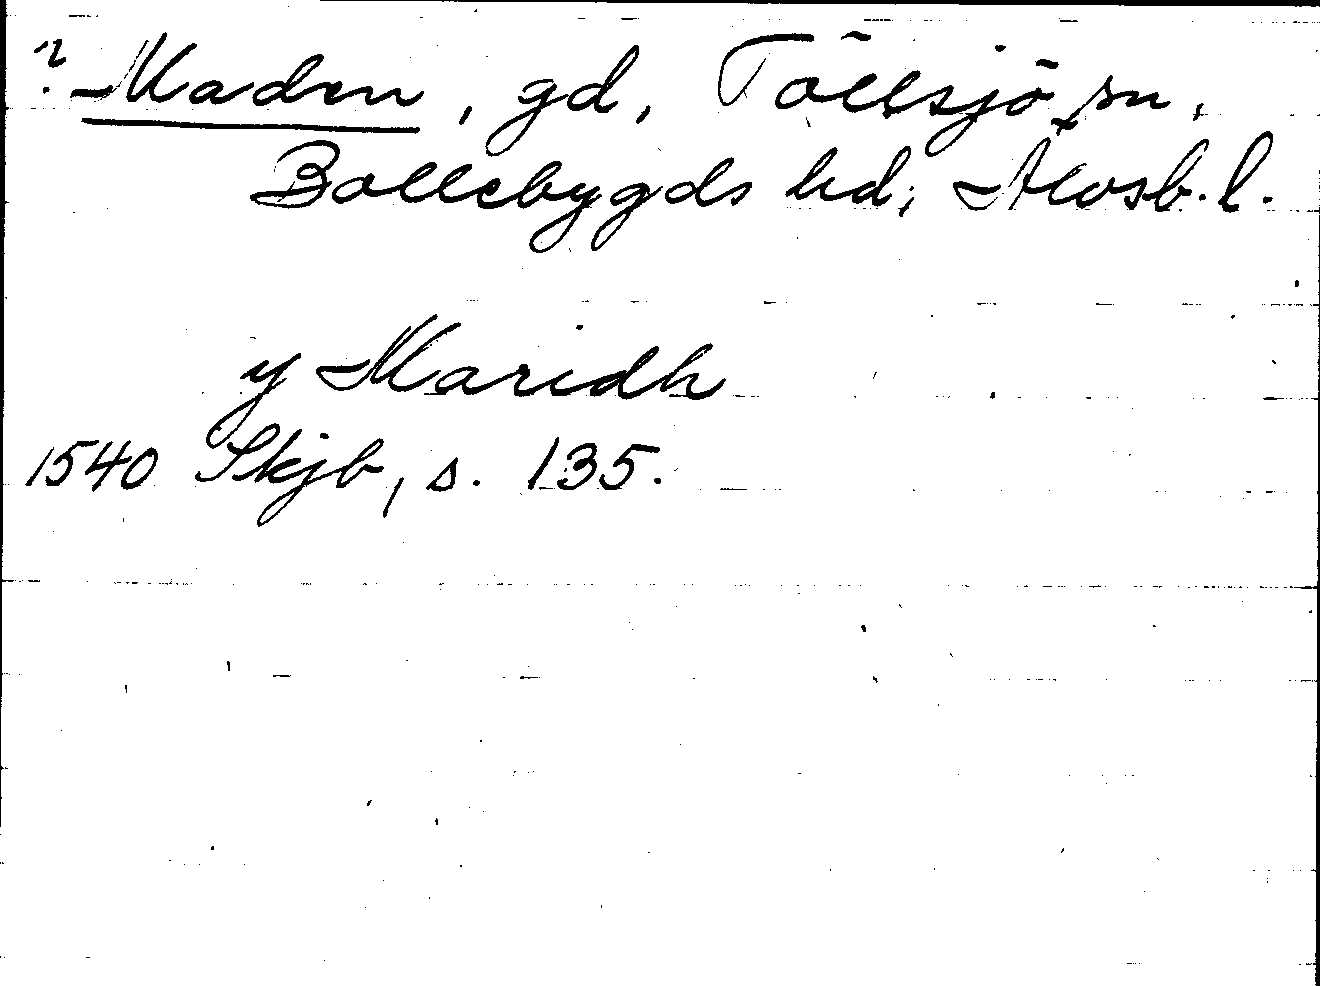 ? Maden, gd, Töllsjö sn,
Bollebygds hd, Älvsb. l.
y Maridh
1540 Skjb, s. 135.